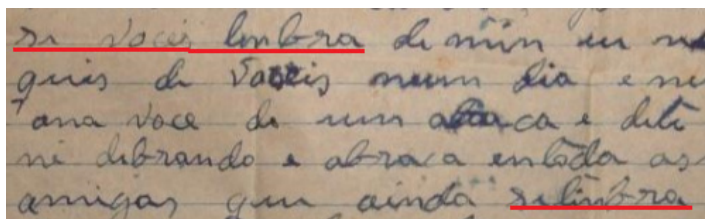 si voceis lenbra de min eu ne
quis de voceis neum dia e ne
ana voce de um abraca e dile
ne dibrando e abraca entoda as
amigas que ainda selenbra